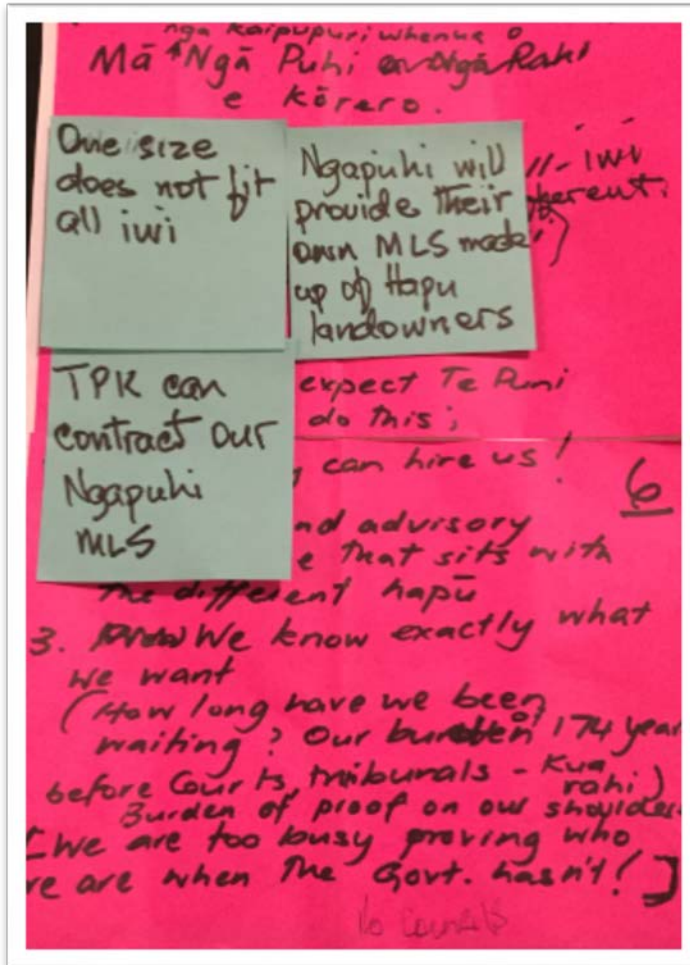 ngā kaipupuri whenua o
Mā Ngā Puhi Ngā Rahi
e kōrero.
One size
does not fit
all iwi
Ngapuhi will
provide their
own MLS made
up of Hapu
landowners
iwi
herent.
TPK can
contract our
Ngapuhi
MLS
expect Te Puni
do this;
can hire us!
6
nd advisory
e that sits with
the different hapū
3. We know exactly what
we want
(How long have we been
waiting? Our burden 174 year
before Courts, tribunals - Kua
rahi)
Burden of proof on our shoulder
[We are too busy proving who
re are when the Govt. hasn't!]
No